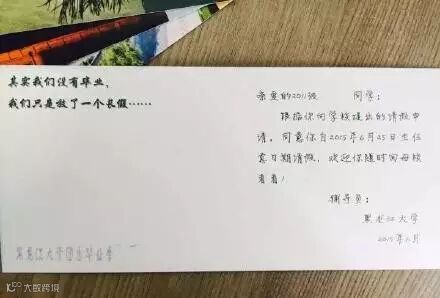 其实我们没有毕业，
我们只是放了一个长假……
亲爱的2011级 同学：
根据你向学校提出的请假申
请，同意你自2015年6月25日至任
意日期请假，欢迎你随时回母校
看看！
辅导员：
黑龙江大学
2015年6月
大数跨境